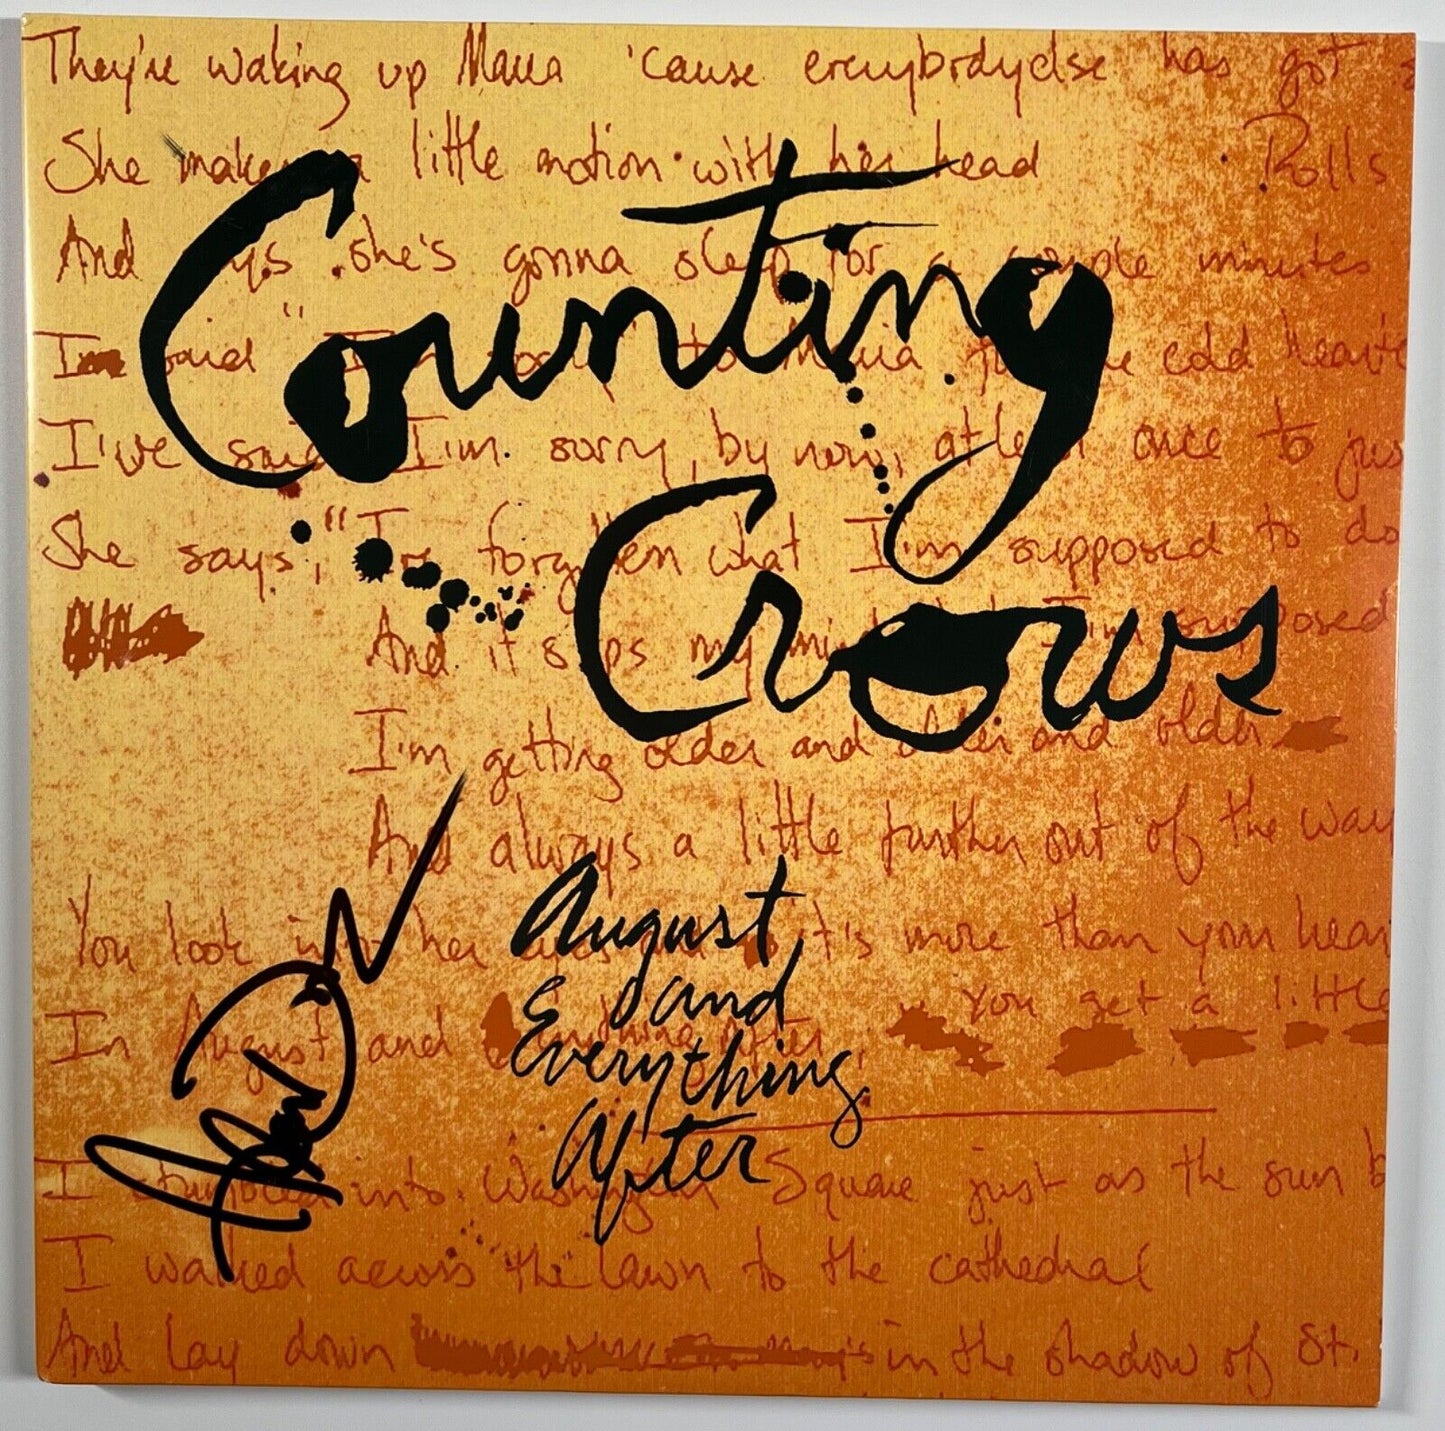 They're waking up Maria 'cause everybody else has got s
She makes a little motion with her head Rolls
And says she's gonna sleep for a couple minutes
I said "I'm sorry to Maria for the cold hearte
I've said I'm sorry, by now, at least once to jus
She says, "I've forgotten what I'm supposed to do
And it slips my mind what I'm supposed
I'm getting older and older and older
And always a little further out of the way
You look into her eyes it's more than your hear
You get a little
In August and everything after,
I stumbled into Washington Square just as the sun b
I walked across the lawn to the cathedral
And lay down in the shadow of St.
Counting
Crows
August
and
Everything
After